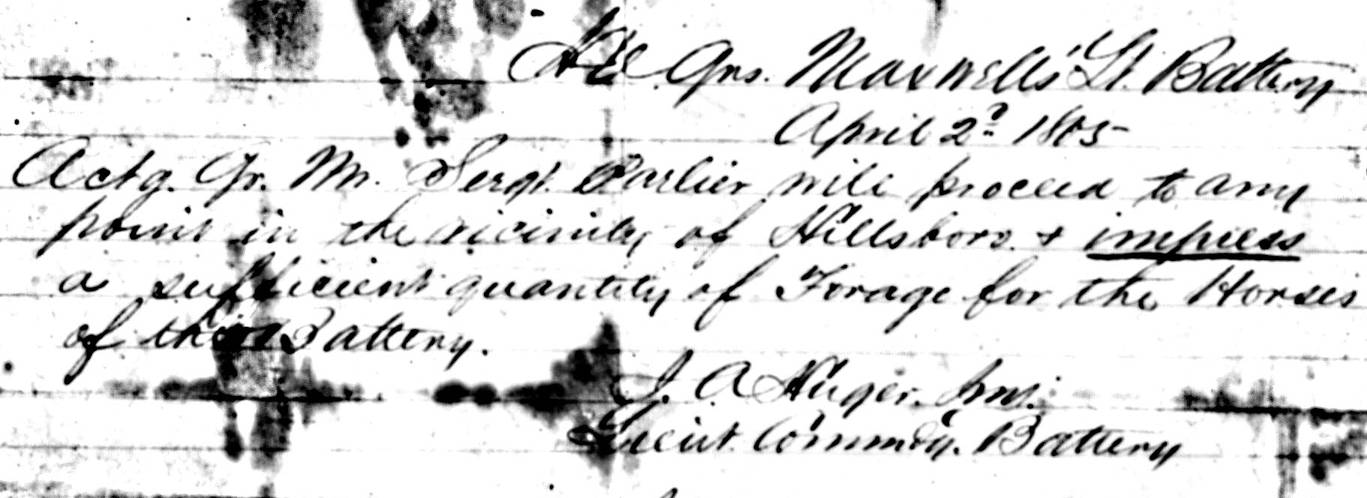 Hd Qrs. Maxwells' Lt. Battery
April 2d 1865
Actg. Qr. Mr. Sergt. Parlier will proceed to any
point in the vicinity of Hillsboro & impress
a sufficient quantity of Forage for the Horses
of this Battery.
J. A. Huger. Jnr.
Lieut. Commdg. Battery